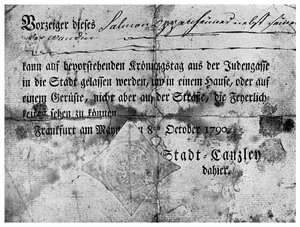 Vorzeiger dieses Salmon Oppenheimer nebst seiner
kann auf bevorstehenden Krönungstag aus der Judengasse
in die Stadt gelassen werden, um in einem Hause, oder auf
einem Gerüste, nicht aber auf der Straße, die Feyerlich
keiten sehen zu können.
Frankfurt am Mayn 8 October 1790.
Stadt-Canzley
dahier.